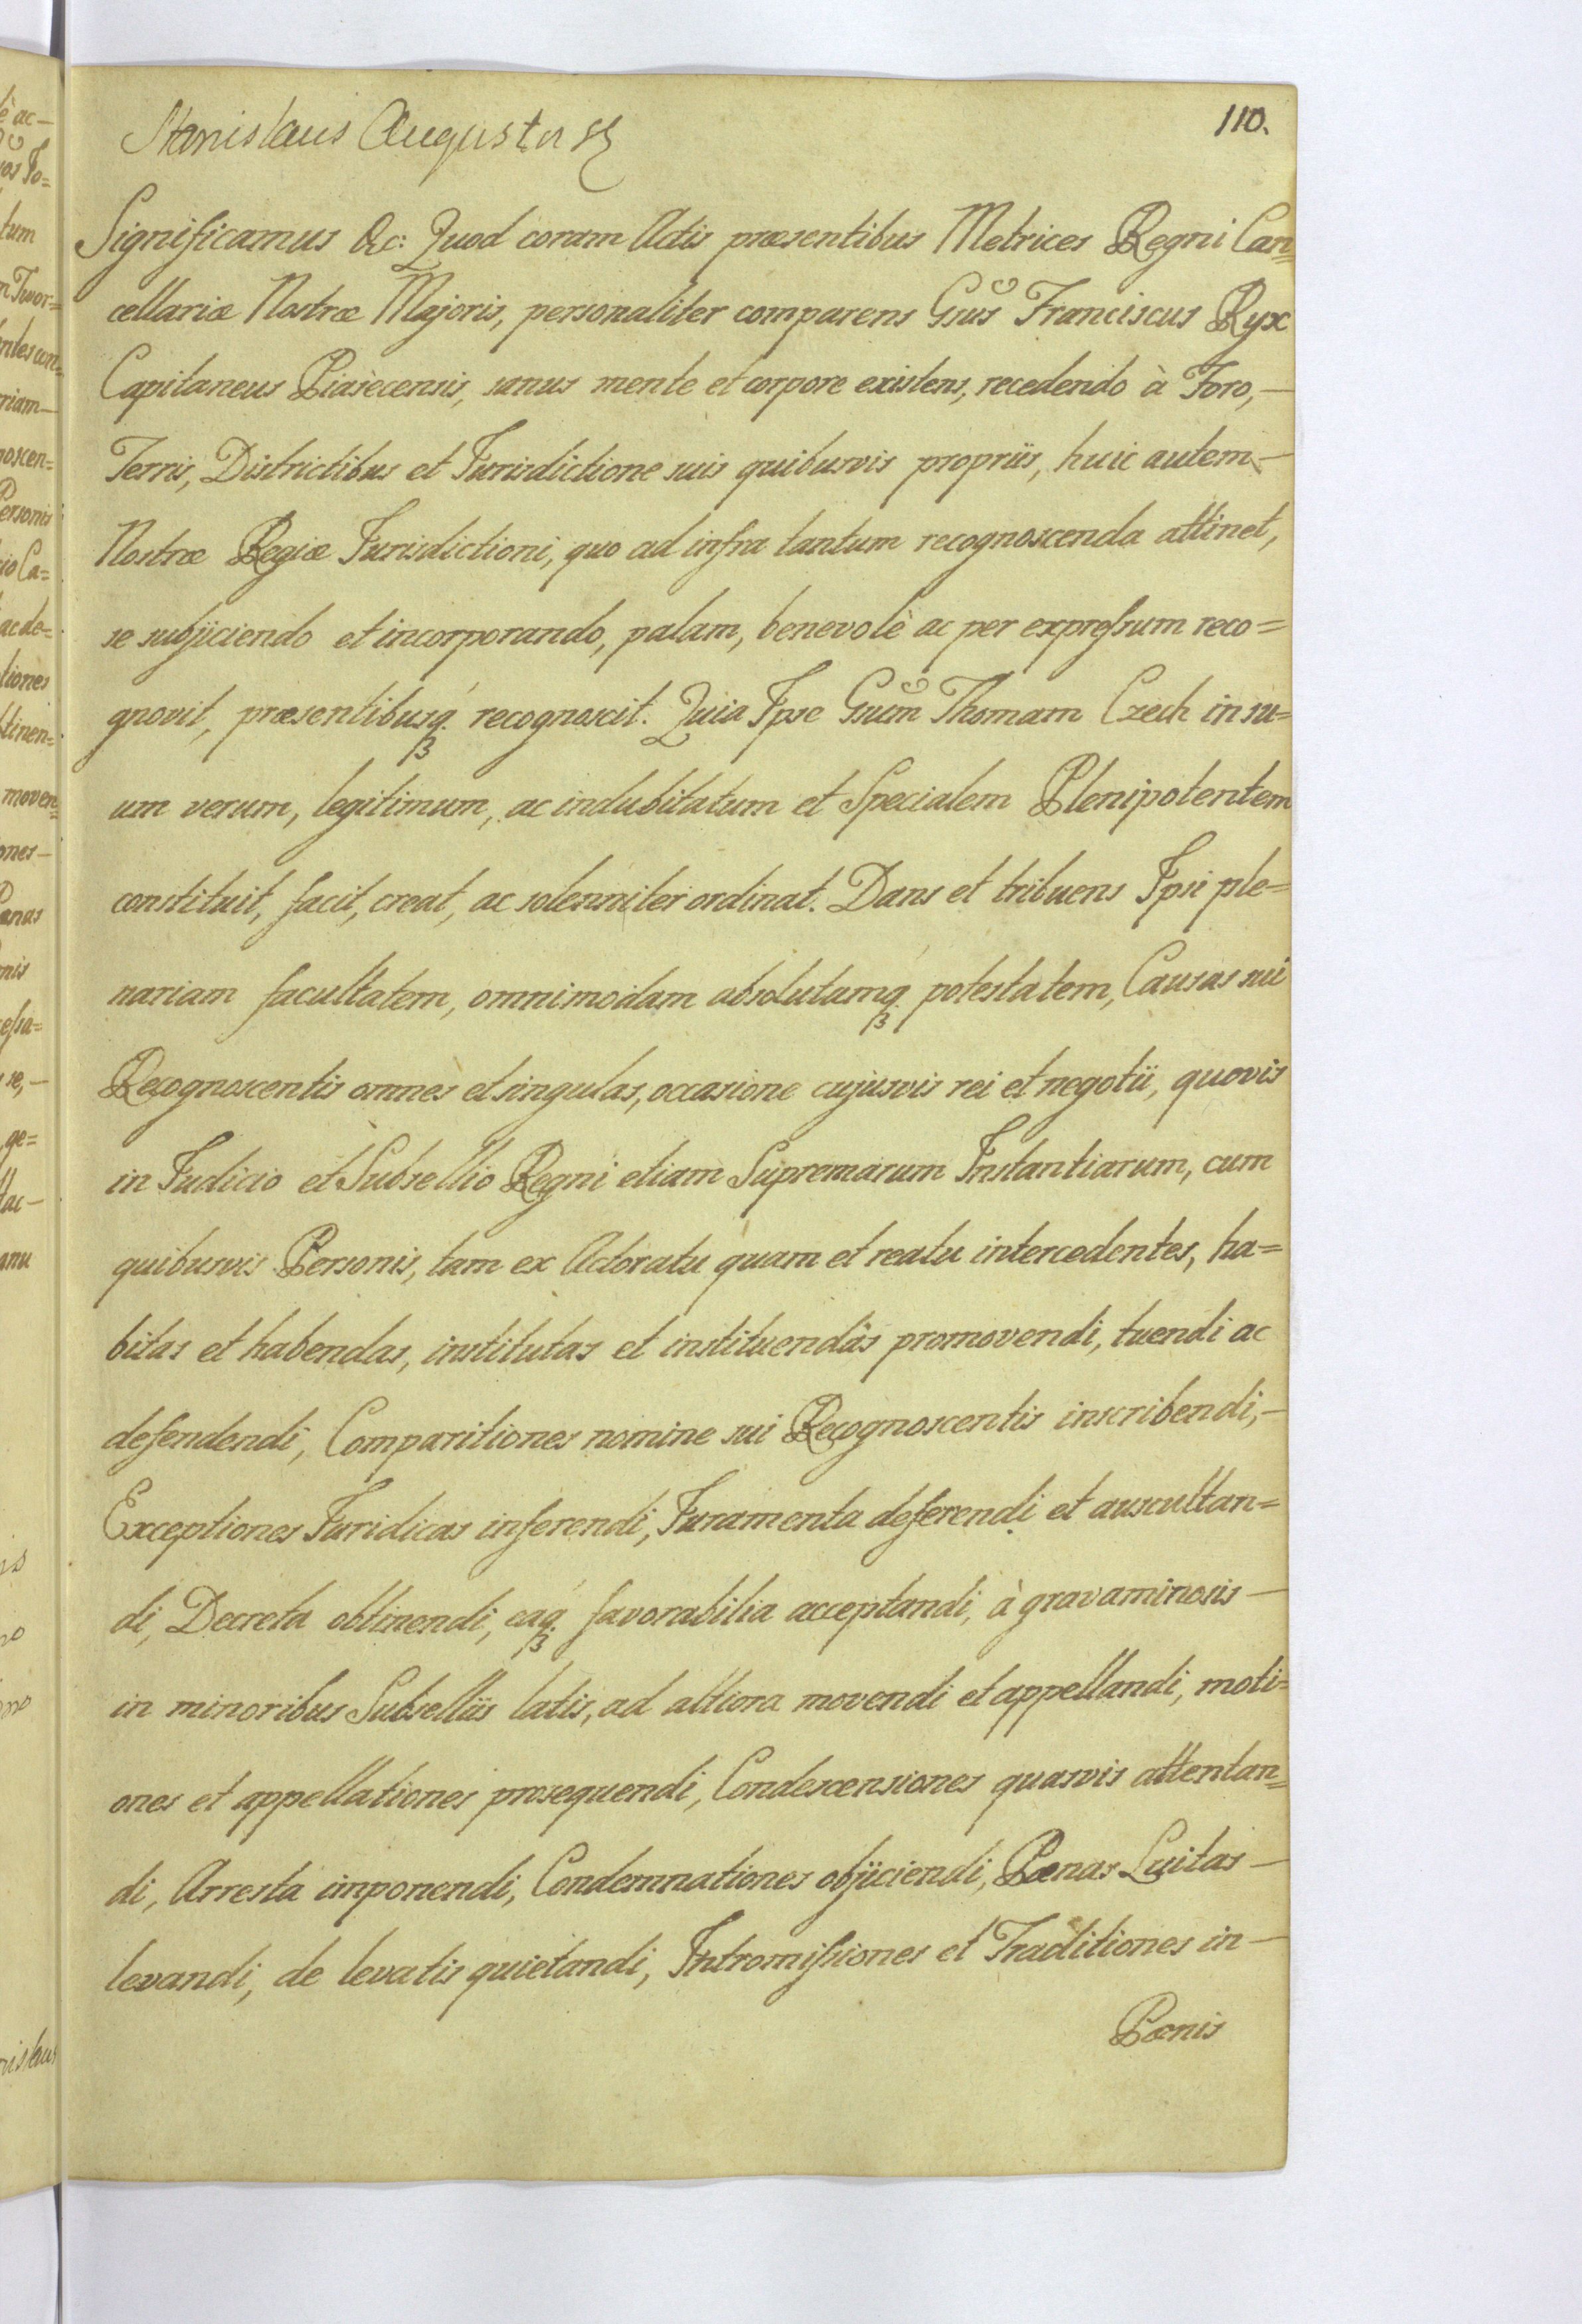 110.
Stanislaus Augustus
Significamus &c: Quod coram Actis præsentibus Metrices Regni Can=
cellariæ Nostræ Majoris, personaliter comparens Gsus Franciscus Ryx
Capitaneus Piasècensis, sanus mente et corpore existens, recedendo à Foro,—
Terris, Districtibus et Jurisdictione suis quibusvis propriis, huic autem—
Nostræ Regiæ Jurisdictioni, quo ad infra tantum recognoscenda attinet,
se subjiciendo et incorporando, palam, benevolè ac per expreſsum reco=
gnovit, præsentibusq. recognoscit. Quia Ipse Gsum Thomam Czech in su=
um verum, legitimum, ac indubitatum et Specialem Plenipotentem
constituit, facit, creat, ac solenniter ordinat. Dans et tribuens Ipsi ple=
nariam facultatem, omnimodam absolutamq. potestatem, Causas sui
Recognoscentis omnes et singulas, occasione cujusvis rei et negotii, quovis
in Judicio et Subsellio Regni etiam Supremarum Instantiarum, cum
quibusvis Personis, tam ex Actoratu quam et reatu intercedentes, ha=
bitas et habendas, institutas et instituendas promovendi, tuendi ac
defendendi, Comparitiones nomine sui Recognoscentis inscribendi,—
Exceptiones Juridicas inferendi, Juramenta deferendi et auscultan=
di, Decreta obtinendi, eaq. favorabilia acceptandi, à gravaminosis—
in minoribus Subselliis latis, ad altiora movendi et appellandi, moti=
ones et appellationes prosequendi, Condescensiones quasvis attentan=
di, Arresta imponendi, Condemnationes objiciendi, Pænas Luitas—
levandi, de levatis quietandi, Intromiſsiones et Traditiones in—
Pænis